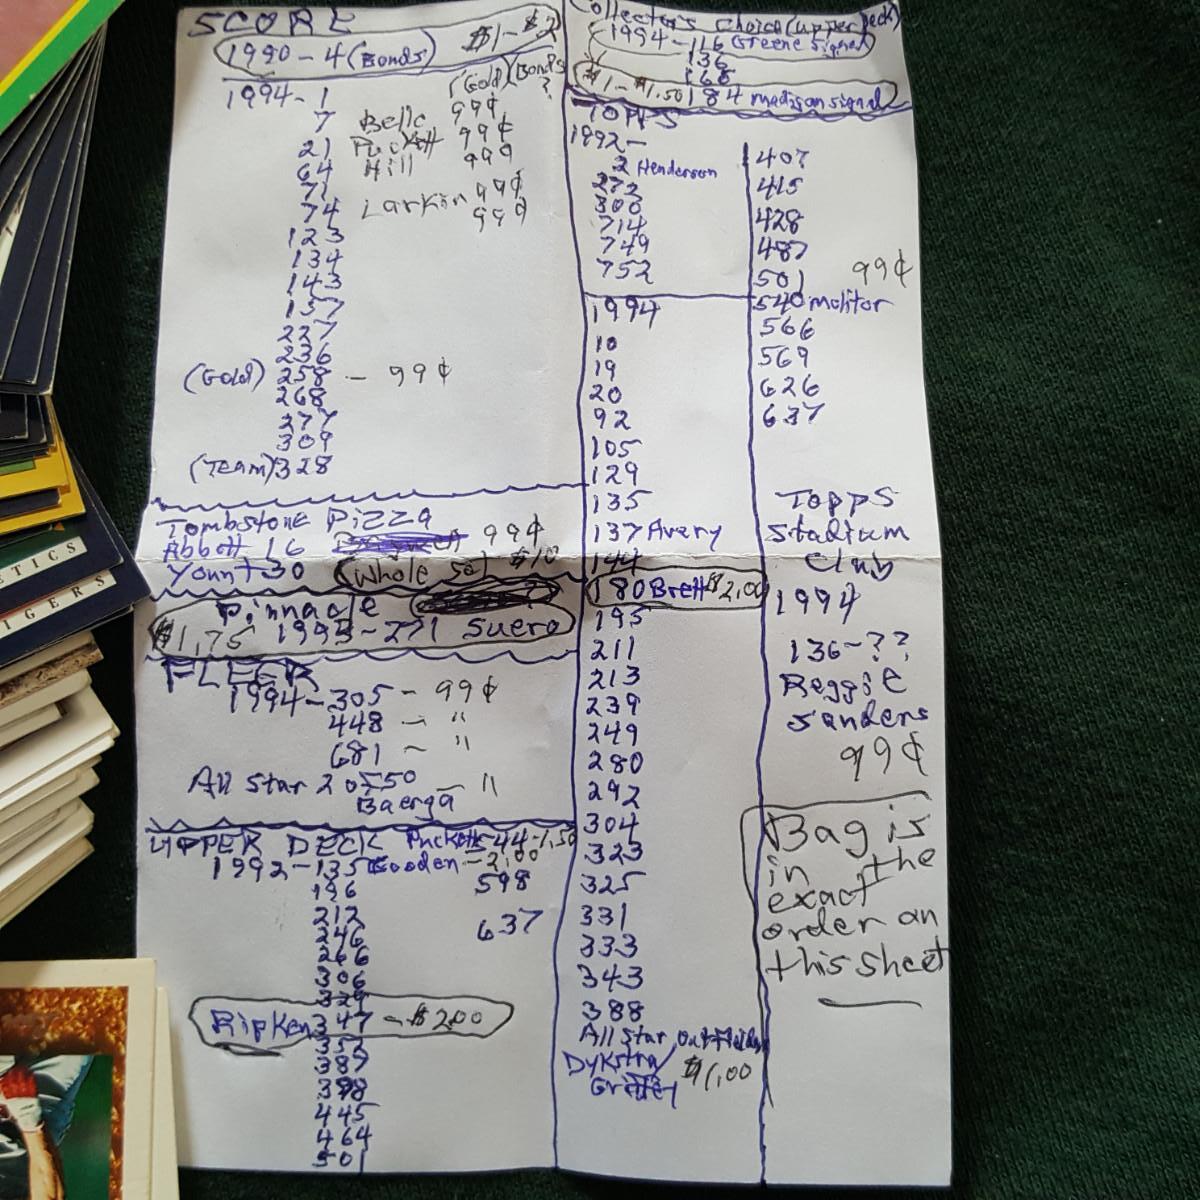 SCORE
1990-4 (Bonds) $1-$2
(Gold)(Bonds)
1994-1 99¢ ?
7 Belle 99¢
21 Puckett 99¢
64 Hill
71 99¢
74 Larkin 99¢
123
134
143
157
227
236
(Gold) 258 - 99¢
268
277
309
(Team) 328
Tombstone Pizza
Abbott 16 99¢
Yount 30 (Whole set) $10
Pinnacle
$1.75 1995-271 Suero
FLEER
1994-305 - 99¢
448 - "
681 - "
All Star 2 of 50 - "
Baerga
UPPER DECK Puckett-44-1.50
1992-135 Gooden - 2.00
196 598
212
246 637
266
306
329
Ripken 347 - $2.00
387
398
445
464
501
Collector's Choice (Upper Deck)
1994-116 Greene signed
136
168
$1-$1.50 184 Madison signed
TOPPS
1992-
2 Henderson
272
300
714
749
752
1994
10
19
20
92
105
129
135
137 Avery
144
180 Brett $2.00
195
211
213
239
249
280
292
304
323
325
331
333
343
388
All Star Outfielders
Dykstra/
Griffey $1.00
407
415
428
487
501 99¢
540 Molitor
566
569
626
637
Topps
Stadium
Club
1994
136-??
Reggie
Sanders
99¢
Bag is
in the
exact
order on
this sheet
ETICS
IGERS